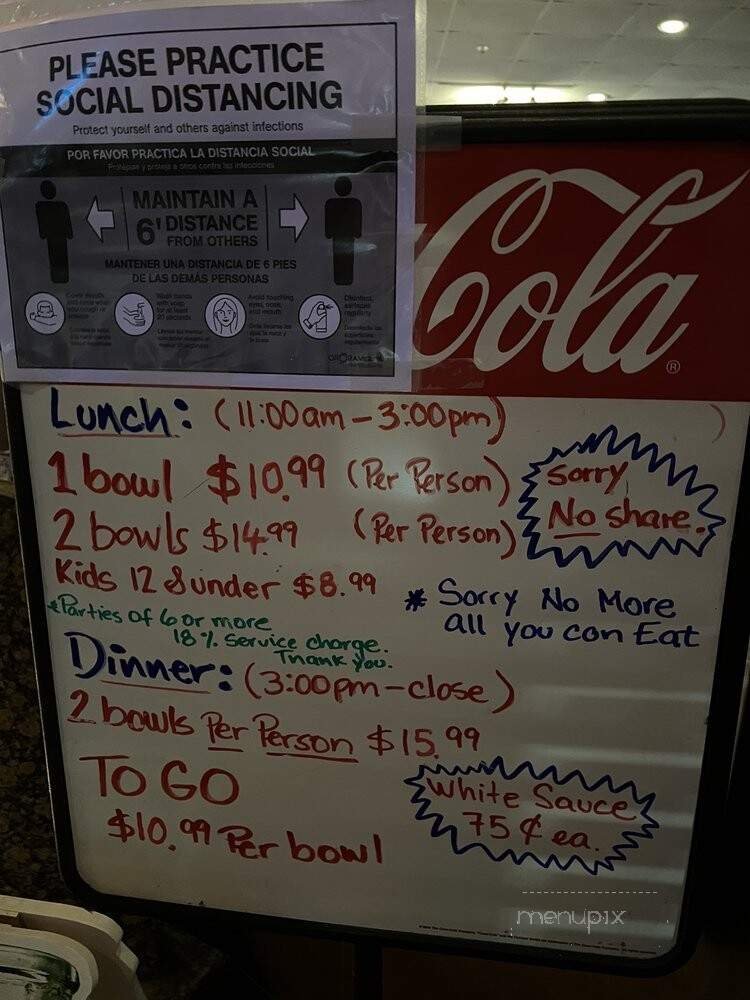 PLEASE PRACTICE
SOCIAL DISTANCING
Protect yourself and others against infections
POR FAVOR PRACTICA LA DISTANCIA SOCIAL
Protégase y proteja a otros contra las infecciones
MAINTAIN A
6' DISTANCE
FROM OTHERS
MANTENER UNA DISTANCIA DE 6 PIES
DE LAS DEMÁS PERSONAS
Wash hands
with soap
for at least
20 seconds
Avoid touching
eyes, nose,
and mouth
Disinfect
surfaces
regularly
Cola®
Lunch: (11:00am - 3:00pm)
1 bowl $10.99 (Per Person)
2 bowls $14.99 (Per Person)
Sorry
No share.
Kids 12 & under $8.99
*Parties of 6 or more
18% Service charge.
Thank you.
* Sorry No More
all you can Eat
Dinner: (3:00pm - close)
2 bowls Per Person $15.99
TO GO
$10.99 Per bowl
White Sauce
75¢ ea.
menupix